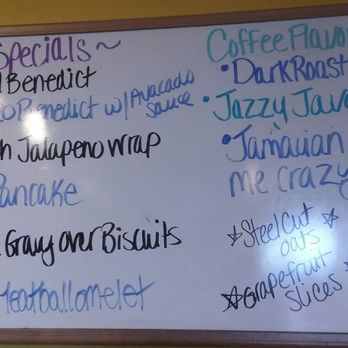 Specials ~
Benedict
Benedict w/ Avacado
Sauce
Jalapeno Wrap
Pancake
Gravy over Biscuits
Meatball omelet
Coffee Flavo
• Dark Roast
• Jazzy Java
• Jamaican
me crazy
☆ Steel Cut
oats
☆ Grapefruit
slices ☆